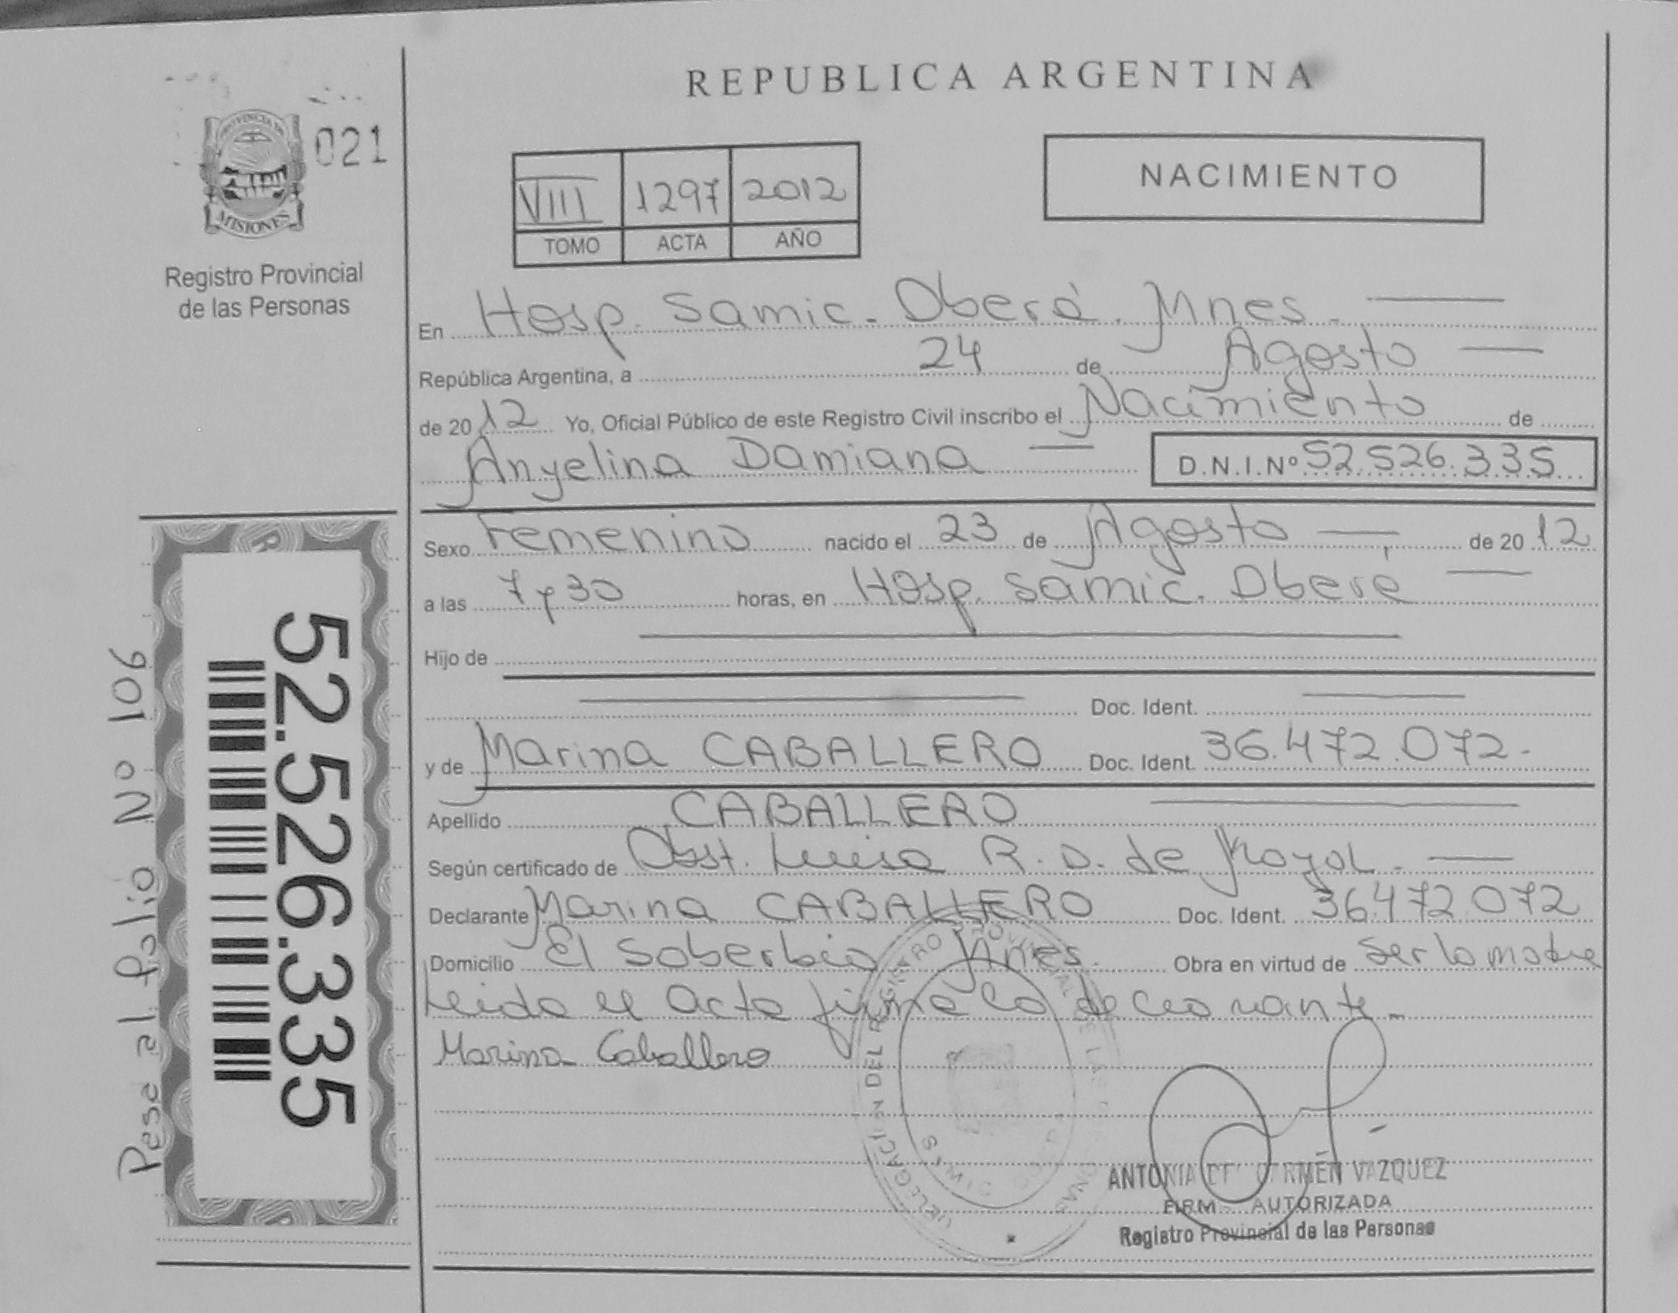 REPUBLICA ARGENTINA
021
PROVINCIA DE
MISIONES
Registro Provincial
de las Personas
NACIMIENTO
VIII 1297 2012
TOMO ACTA AÑO
En Hosp. Samic. Oberá. Mnes.
República Argentina, a 24 de Agosto
de 2012 Yo, Oficial Público de este Registro Civil inscribo el Nacimiento de
Anyelina Damiana D.N.I.Nº 52.526.335
Sexo Femenino nacido el 23 de Agosto de 2012
a las 7 y 30 horas, en Hosp. Samic. Oberá
Hijo de
Doc. Ident.
y de Marina CABALLERO Doc. Ident. 36.472.072.
Apellido CABALLERO
Según certificado de Obst. Luisa R. D. de
Declarante Marina CABALLERO Doc. Ident. 36472072
Domicilio El Soberbio Mnes. Obra en virtud de ser la madre
Leída el acta firma la declarante.
Marina Caballero
ANTONIA DEL CARMEN VAZQUEZ
FIRMA AUTORIZADA
Registro Provincial de las Personas
52.526.335
Pasa al folio No 106